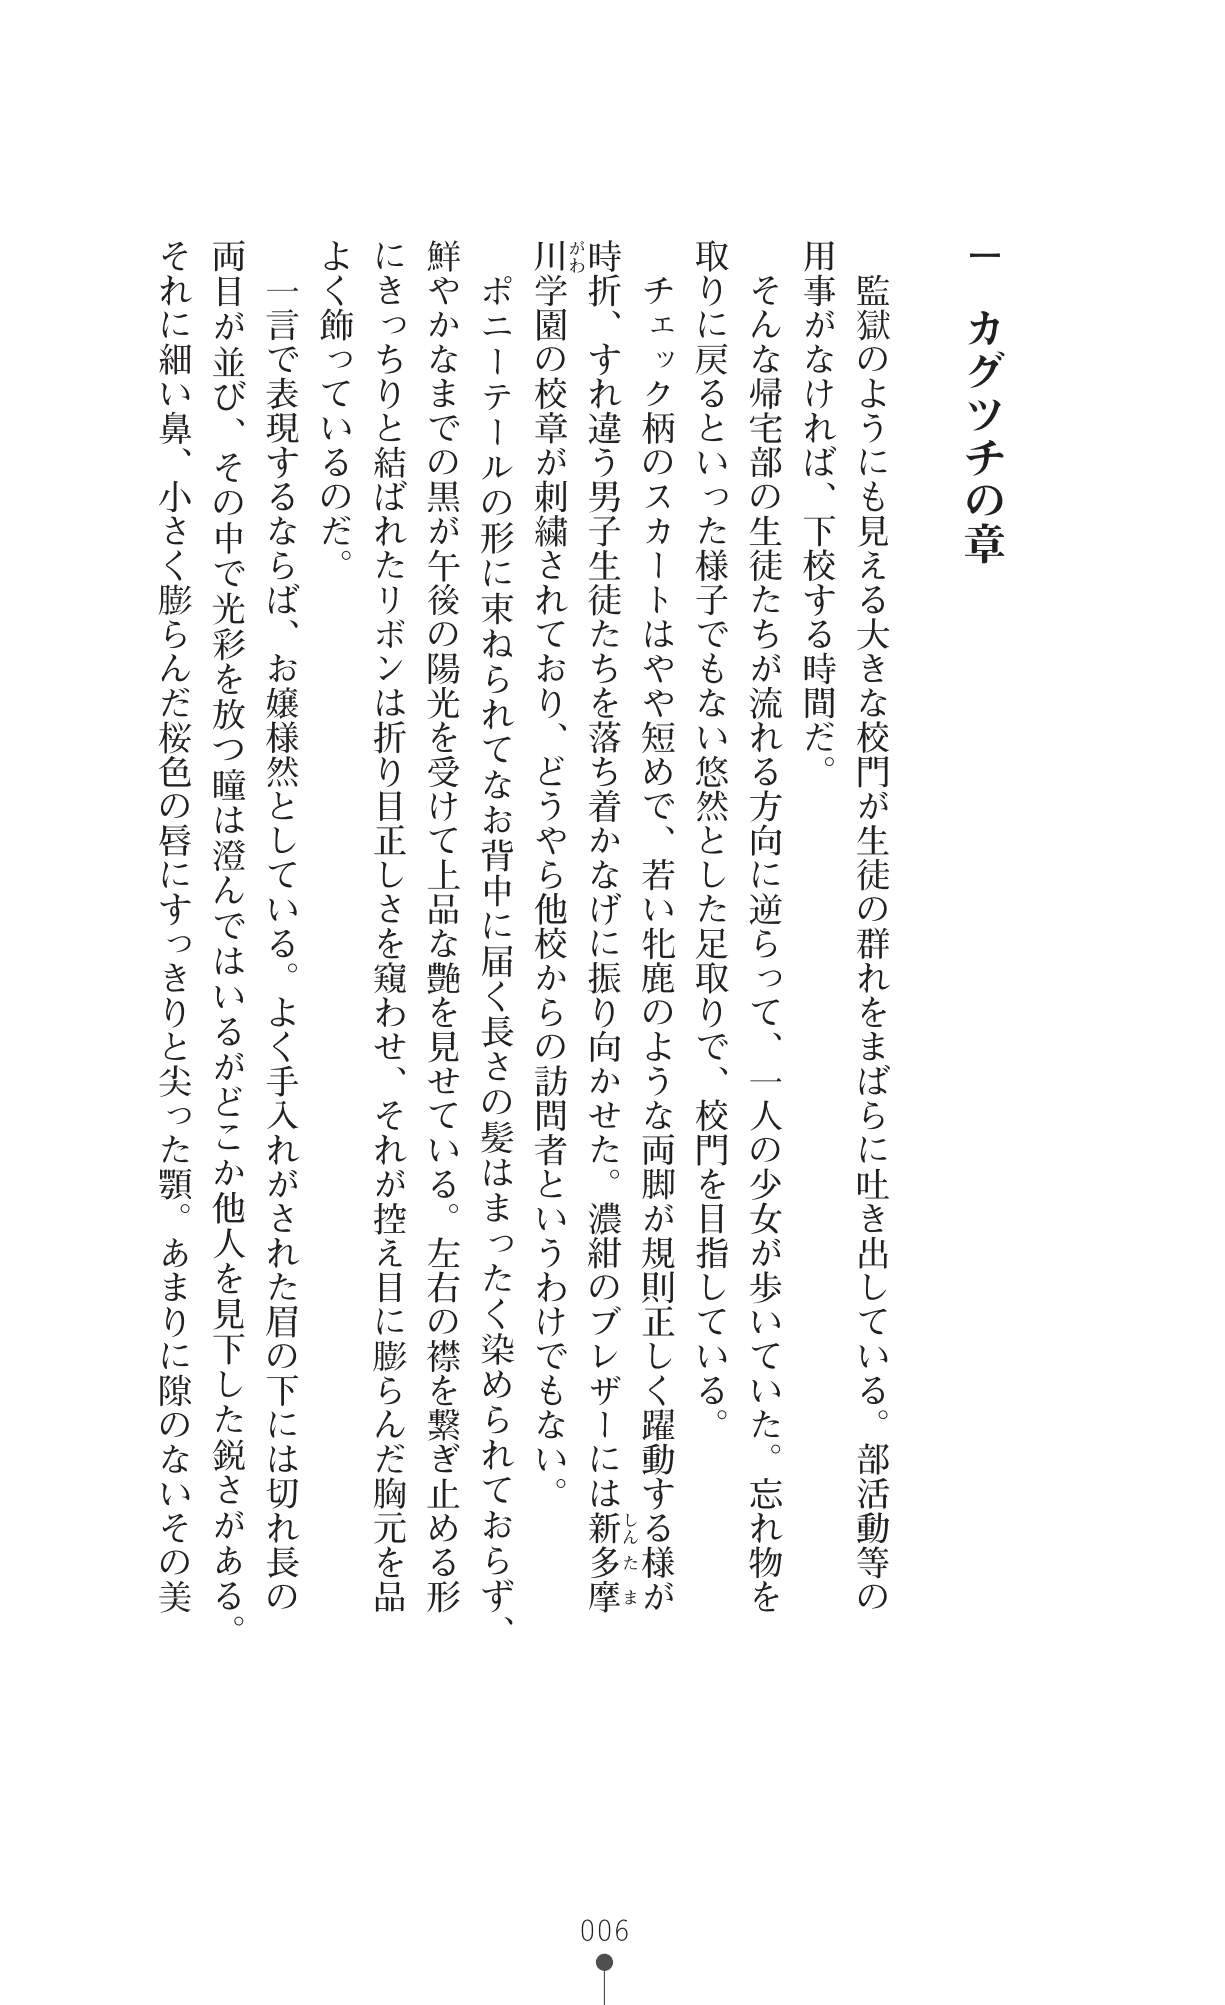 一　カグツチの章
監獄のようにも見える大きな校門が生徒の群れをまばらに吐き出している。部活動等の
用事がなければ、下校する時間だ。
そんな帰宅部の生徒たちが流れる方向に逆らって、一人の少女が歩いていた。忘れ物を
取りに戻るといった様子でもない悠然とした足取りで、校門を目指している。
チェック柄のスカートはやや短めで、若い牝鹿のような両脚が規則正しく躍動する様が
時折、すれ違う男子生徒たちを落ち着かなげに振り向かせた。濃紺のブレザーには新多摩
川学園の校章が刺繍されており、どうやら他校からの訪問者というわけでもない。
ポニーテールの形に束ねられてなお背中に届く長さの髪はまったく染められておらず、
鮮やかなまでの黒が午後の陽光を受けて上品な艶を見せている。左右の襟を繋ぎ止める形
にきっちりと結ばれたリボンは折り目正しさを窺わせ、それが控え目に膨らんだ胸元を品
よく飾っているのだ。
一言で表現するならば、お嬢様然としている。よく手入れがされた眉の下には切れ長の
両目が並び、その中で光彩を放つ瞳は澄んではいるがどこか他人を見下した鋭さがある。
それに細い鼻、小さく膨らんだ桜色の唇にすっきりと尖った顎。あまりに隙のないその美
006